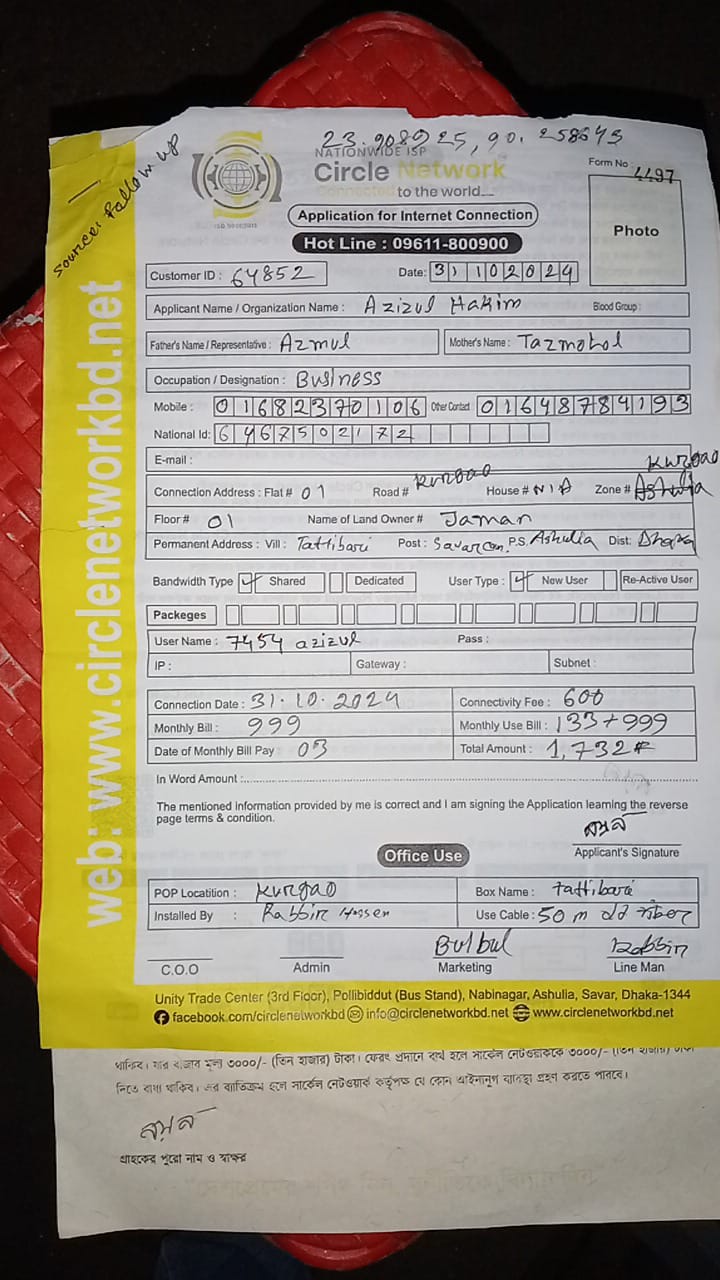 23.908925, 90.258643
Source: Follow up
NATIONWIDE ISP
Circle Network
Connected to the world....
ISO 9001:2015
Form No : 4497
Application for Internet Connection
Photo
Hot Line : 09611-800900
Customer ID : 64852 Date: 31102024
Applicant Name / Organization Name : Azizul Hakim Blood Group :
Father's Name / Representative : Azmul Mother's Name : Tazmohol
Occupation / Designation : Business
Mobile : 01682370106 Other Contact 01648784193
National Id: 6467502172
E-mail :
Connection Address : Flat # 01 Road # Kurgao House # N/A Zone # Kurgao Ashulia
Floor # 01 Name of Land Owner # Jaman
Permanent Address : Vill : Tattibari Post : Savar P.S. Ashulia Dist: Dhaka
Bandwidth Type ✓ Shared Dedicated User Type : ✓ New User Re-Active User
Packeges
User Name : 7454 azizul Pass :
IP : Gateway : Subnet :
Connection Date : 31.10.2024 Connectivity Fee : 600
Monthly Bill : 999 Monthly Use Bill : 133+999
Date of Monthly Bill Pay : 03 Total Amount : 1,732
In Word Amount :
The mentioned information provided by me is correct and I am signing the Application learning the reverse
page terms & condition.
Applicant's Signature
Office Use
POP Locatition : Kurgao Box Name : tattibari
Installed By : Rabbir Hossen Use Cable : 50 m
Bulbul Robbin
C.O.O Admin Marketing Line Man
Unity Trade Center (3rd Floor), Pollibiddut (Bus Stand), Nabinagar, Ashulia, Savar, Dhaka-1344
facebook.com/circlenetworkbd info@circlenetworkbd.net www.circlenetworkbd.net
web: www.circlenetworkbd.net
থাকিব। যার বাজার মূল্য ৩০০০/- (তিন হাজার) টাকা। ফেরৎ প্রদানে ব্যর্থ হলে সার্কেল নেটওয়ার্ককে ৩০০০/- (তিন হাজার) টাকা
দিতে বাধ্য থাকিব। এর ব্যতিক্রম হলে সার্কেল নেটওয়ার্ক কর্তৃপক্ষ যে কোন আইনানুগ ব্যবস্থা গ্রহণ করতে পারবে।
গ্রাহকের পুরো নাম ও স্বাক্ষর